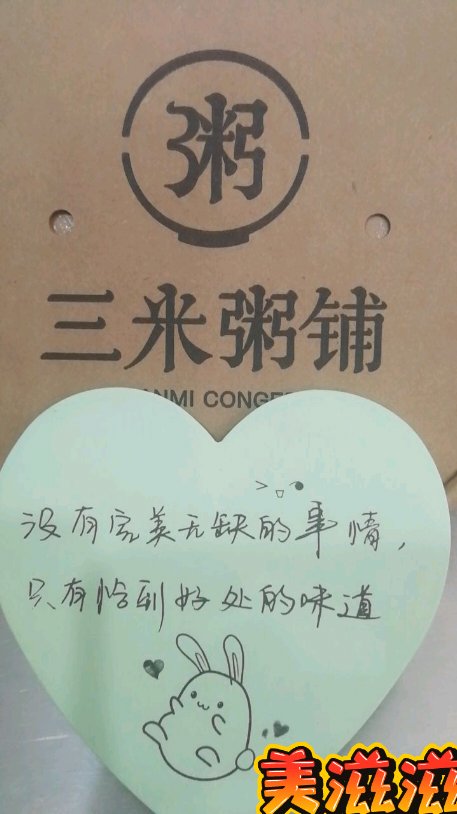 粥
三米粥铺
ANMI CONGE
没有完美无缺的事情，
只有恰到好处的味道
美滋滋